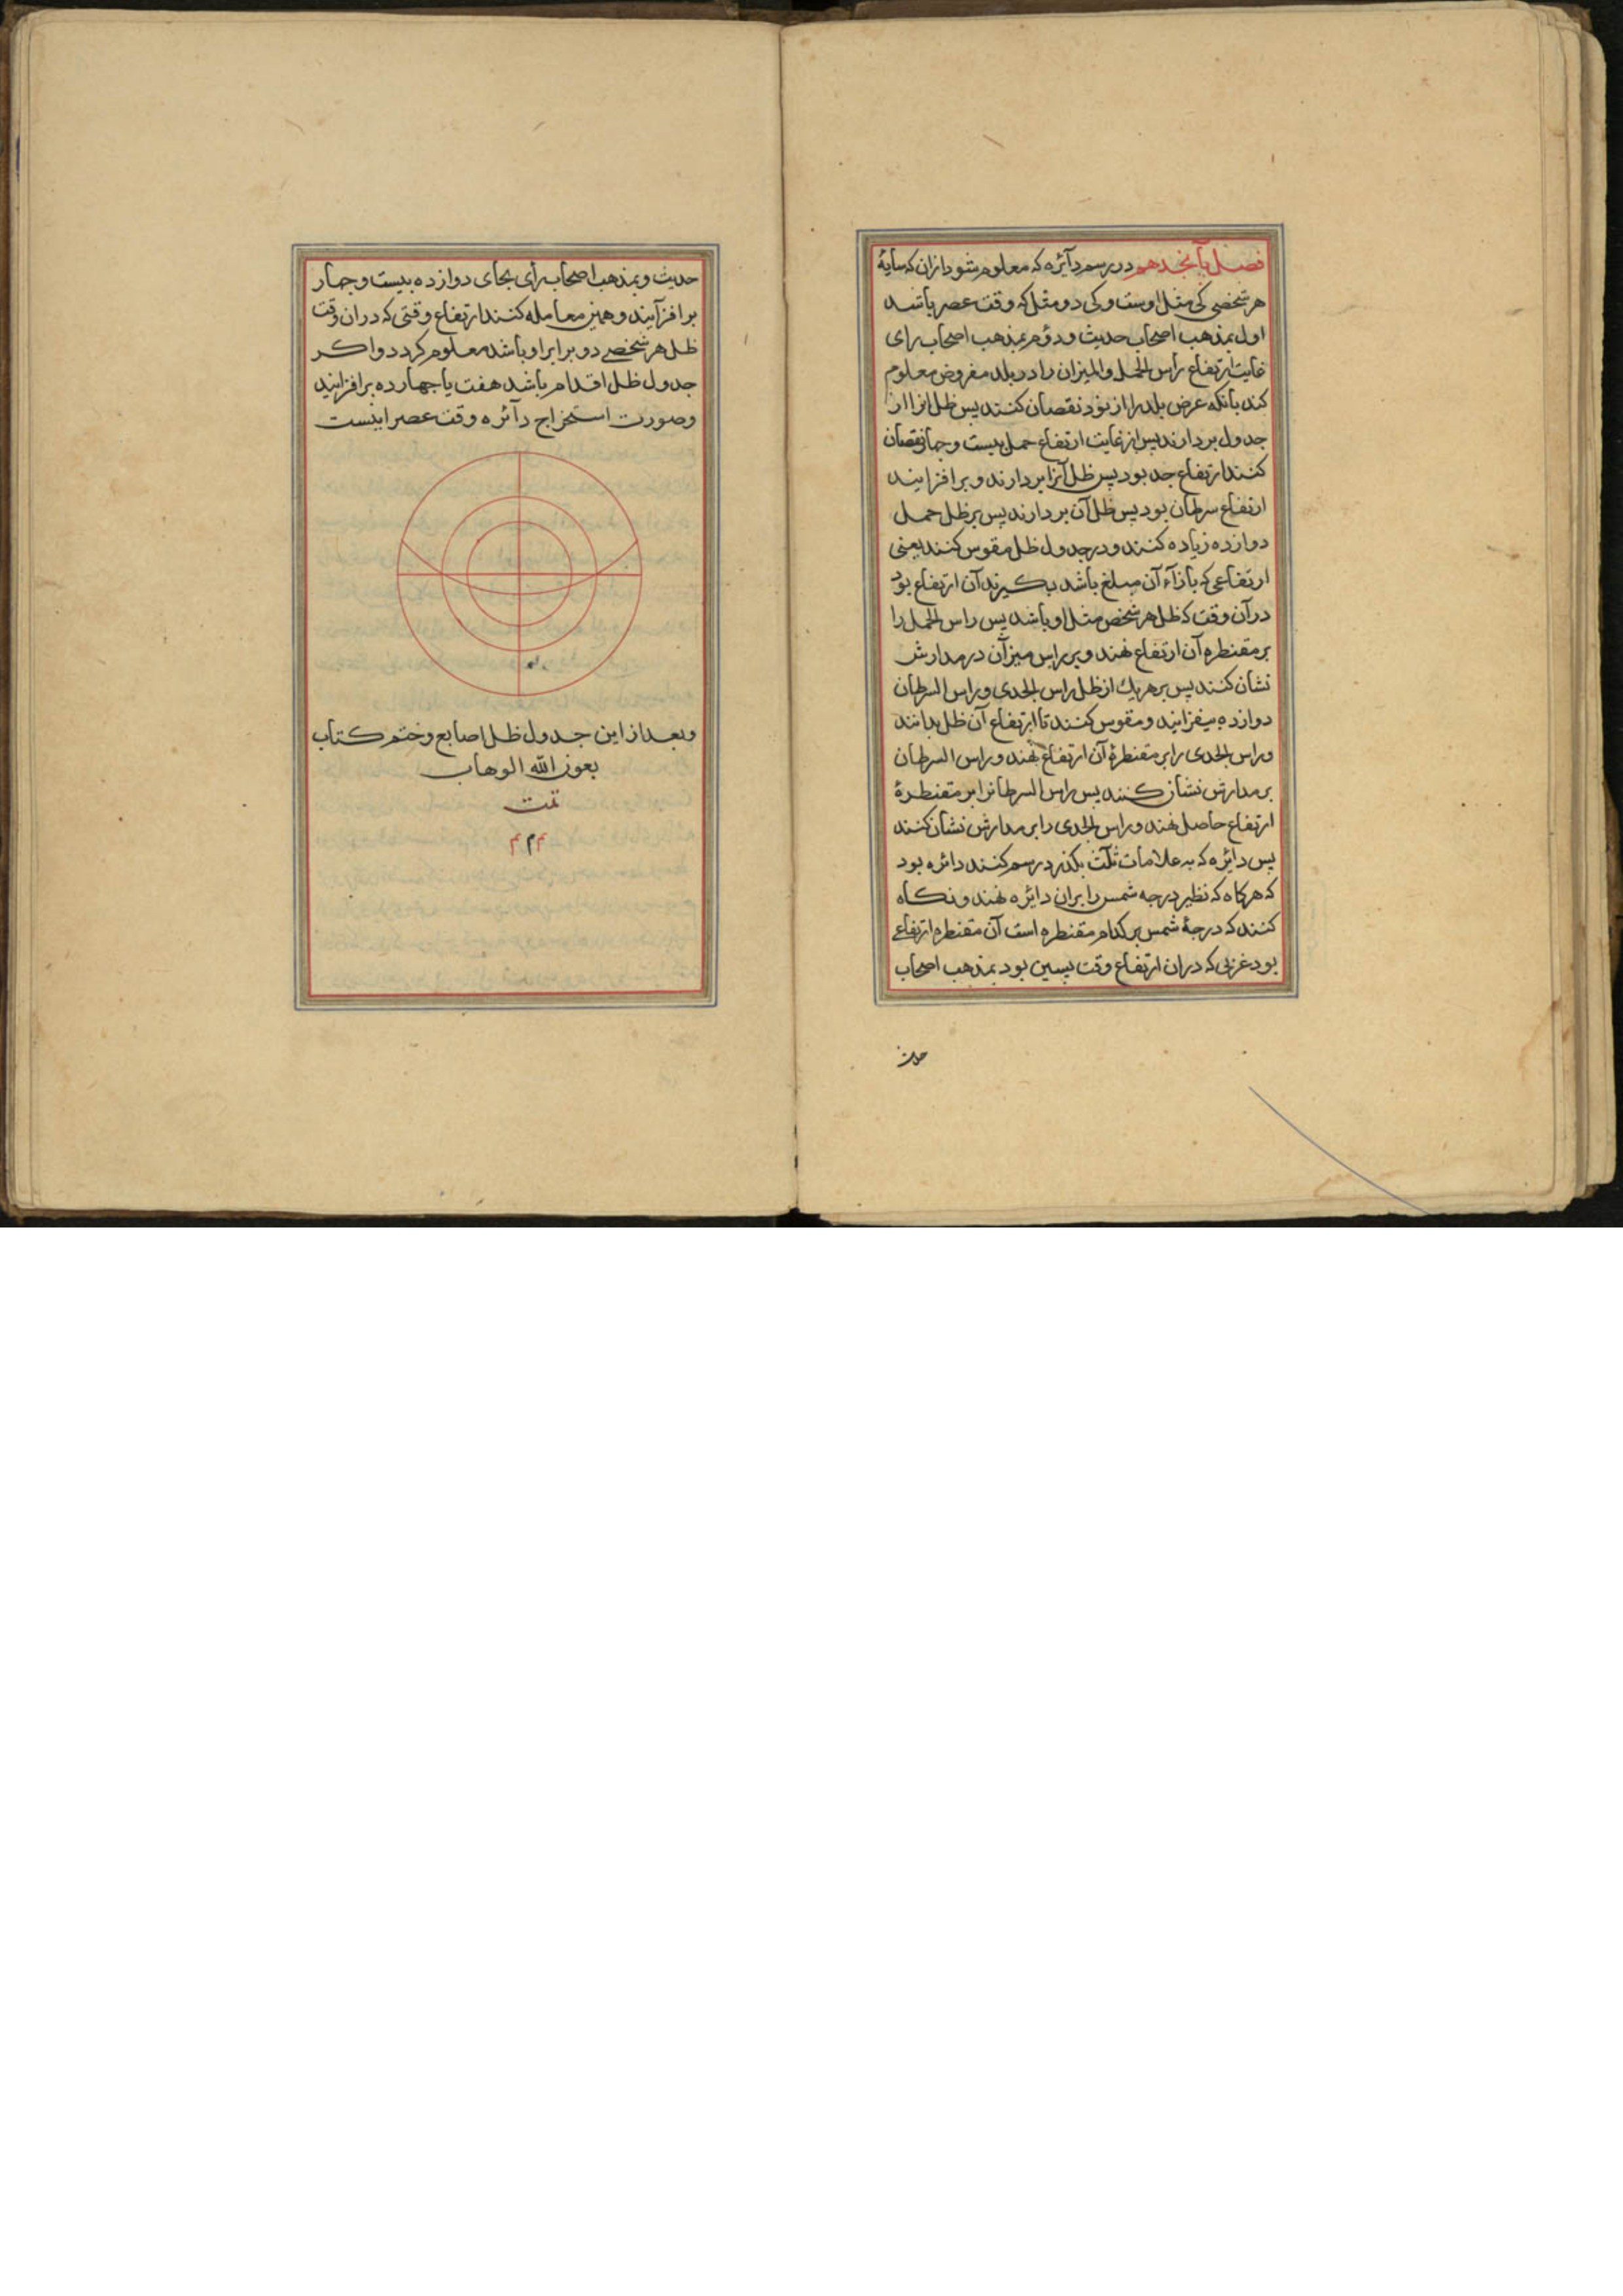 فصل پانجدهم در رسم دآئره که معلوم شود ازان که سایۀ
هر شخصی کی مثل اوست و کی دو مثل که وقت عصر باشد
اول بمذهب اصحاب حدیث و دوم بمذهب اصحاب رای
غایت ارتفاع رأس الحمل والمیزان را در بلد مفروض معلوم
کند بآنکه عرض بلد را از نود نقصان کنند پس ظل انرا از
جدول بردارند پس از غایت ارتفاع حمل بیست و چهار نقصان
کنند ارتفاع جد بود پس ظل آنرا بردارند و برافزایند
ارتفاع سرطان بود پس ظل آن بردارند پس بر ظل حمل
دوازده زیاده کنند و در جدول ظل مقوس کنند یعنی
ارتفاعی که بازآء آن مبلغ باشد بکیرند آن ارتفاع بود
در آن وقت که ظل هر شخص مثل او باشد پس راس الحمل را
بر مقنطره آن ارتفاع نهند و بر راس میزان در مدارش
نشان کنند پس بر هر یك از ظل راس الجدی و راس السرطان
دوازده بیفزایند و مقوس کنند تا ارتفاع آن ظل بدانند
و راس الجدی را بر مقنطرۀ آن ارتفاع نهند و راس السرطان
بر مدارش نشان کنند پس راس السرطانرا بر مقنطرۀ
ارتفاع حاصل نهند و راس الجدی را بر مدارش نشان کنند
پس دائره که به علامات ثلث بکذرد رسم کنند دائره بود
که هرکاه که نظیر درجه شمس را بران دایره نهند و نکاه
کنند که درجۀ شمس بر کدام مقنطره است آن مقنطره ارتفاعی
بود غربی که دران ارتفاع وقت پسین بود بمذهب اصحاب
حدیث
حدیث و بمذهب اصحاب رأی بجای دوازده بیست و چهار
برافزآیند و همین معامله کنند ارتفاع وقتی که دران وقت
ظل هر شخصے دو برابر او باشد معلوم کردد و اکر
جدول ظل اقدام باشد هفت یا چهارده برافزایند
و صورت استخراج دآئره وقت عصر اینست
و بعد از این جدول ظل اصابع و ختم کتاب
بعون الله الوهاب
تمت
م م م